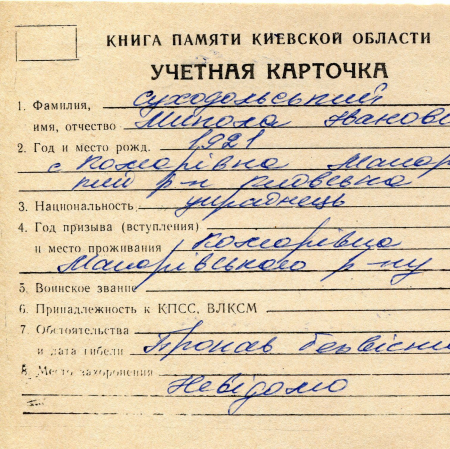 КНИГА ПАМЯТИ КИЕВСКОЙ ОБЛАСТИ
УЧЕТНАЯ КАРТОЧКА
1. Фамилия, Суходольський
имя, отчество Микола Іванови
2. Год и место рожд. 1921
с Кошарівка
р-н
3. Национальность українець
4. Год призыва (вступления)
и место проживания
р-ну
5. Воинское звание
6. Принадлежность к КПСС, ВЛКСМ
7. Обстоятельства
и дата гибели Пропав безвісти
8. Место захоронения
Невідомо